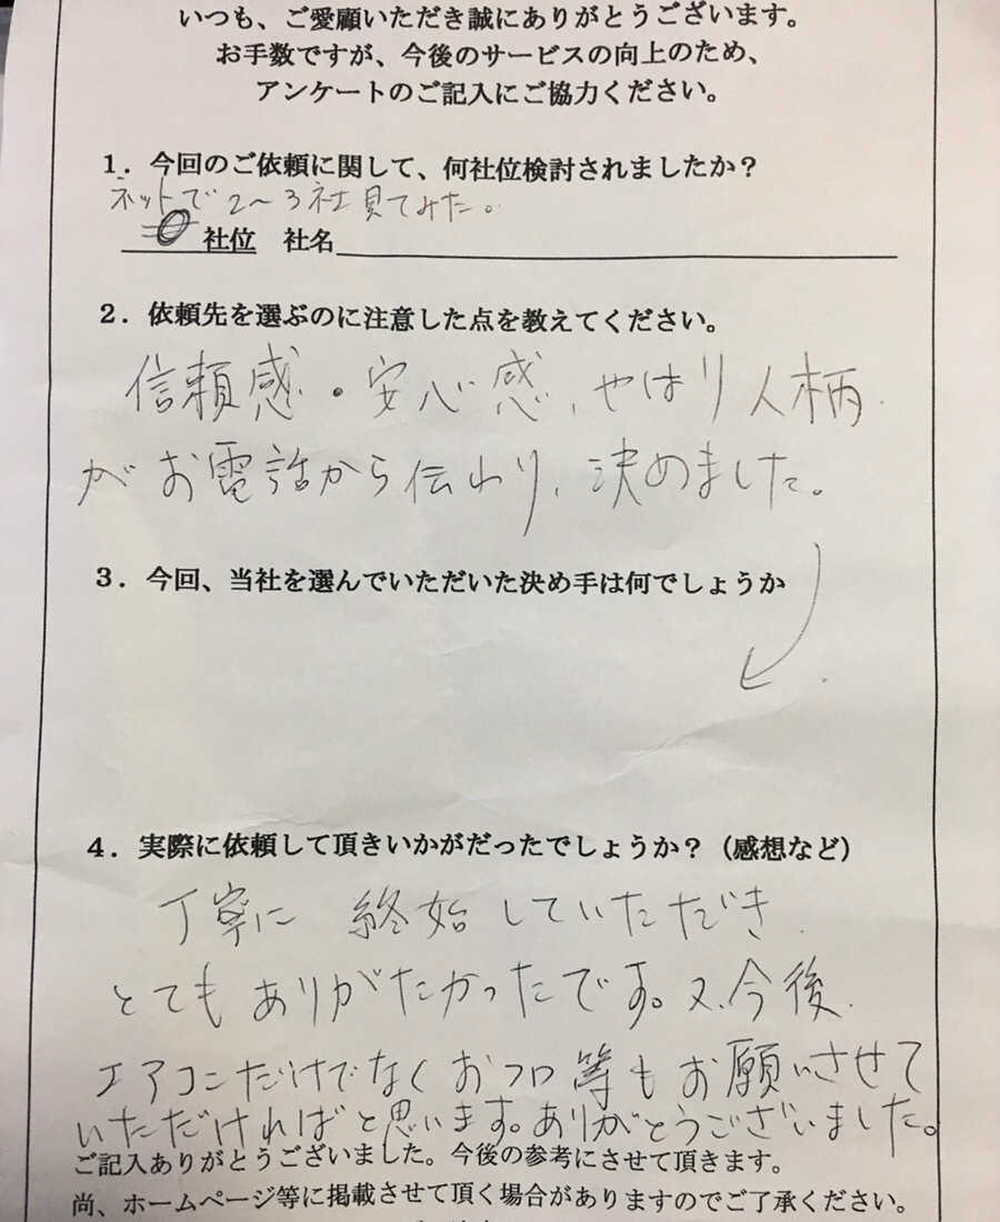 いつも、ご愛顧いただき誠にありがとうございます。
お手数ですが、今後のサービスの向上のため、
アンケートのご記入にご協力ください。
1．今回のご依頼に関して、何社位検討されましたか？
ネットで2〜3社見てみた。
社位 社名
2．依頼先を選ぶのに注意した点を教えてください。
信頼感・安心感、やはり人柄
がお電話から伝わり、決めました。
3．今回、当社を選んでいただいた決め手は何でしょうか
4．実際に依頼して頂きいかがだったでしょうか？（感想など）
丁寧に 終始していただき
とてもありがたかったです。又、今後
エアコンだけでなくおフロ等もお願いさせて
いただければと思います。ありがとうございました。
ご記入ありがとうございました。今後の参考にさせて頂きます。
尚、ホームページ等に掲載させて頂く場合がありますのでご了承ください。